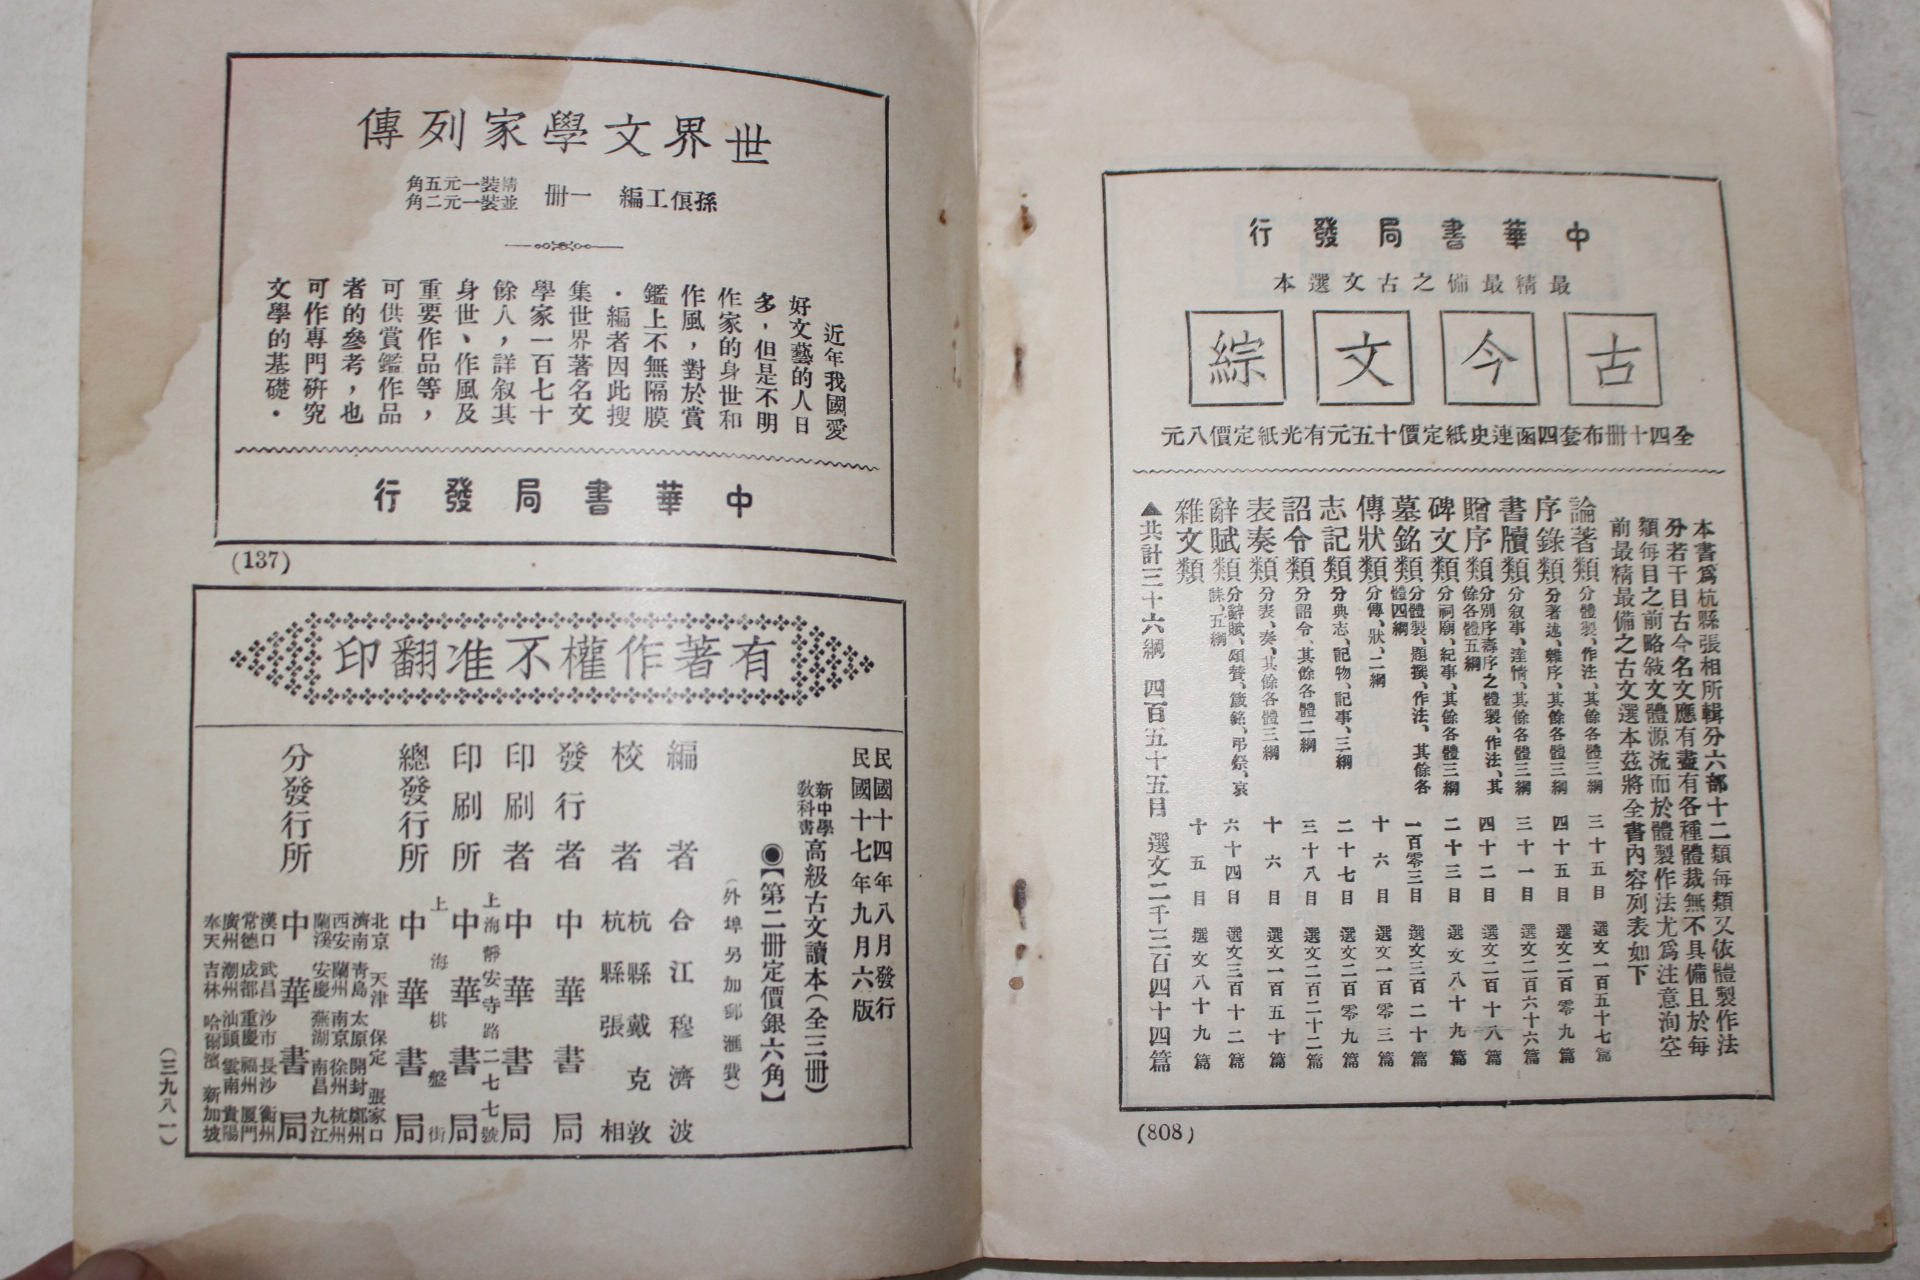 中華書局發行
最精最備之古文選本
古今文綜
全四十冊布套四函連史紙定價十五元有光紙定價八元
本書爲杭縣張相所輯分六部十二類每類又依體製作法
分若干目古今名文應有盡有各種體裁無不具備且於每
類每目之前略敍文體源流而於體製作法尤爲注意洵空
前最精最備之古文選本茲將全書內容列表如下
論著類 分體製、作法、其餘各體三綱 三十五目 選文一百五十七篇
序錄類 分著述、雜序、其餘各體三綱 四十五目 選文二百零九篇
書牘類 分敍事、達情、其餘各體三綱 三十一目 選文二百六十六篇
贈序類 分別序壽序之體製、作法、其餘各體五綱 四十二目 選文二百十八篇
碑文類 分祠廟、紀事、其餘各體三綱 二十三目 選文八十九篇
墓銘類 分體製、題撰、作法、其餘各體四綱 一百零三目 選文三百二十篇
傳狀類 分傳、狀、二綱 十六目 選文一百零三篇
志記類 分典志、記物、記事、三綱 二十七目 選文二百零九篇
詔令類 分詔令、其餘各體二綱 三十八目 選文二百二十二篇
表奏類 分表、奏、其餘各體三綱 十六目 選文一百五十篇
辭賦類 分辭賦、頌贊、箴銘、弔祭、哀誄、五綱 六十四目 選文三百十二篇
雜文類 十五目 選文八十九篇
▲共計三十六綱 四百五十五目 選文二千三百四十四篇
(808)
世界文學家列傳
孫俍工編 一冊 精裝一元五角
並裝一元二角
近年我國愛
好文藝的人日
多，但是不明
作家的身世和
作風，對於賞
鑑上不無隔膜
．編者因此搜
集世界著名文
學家一百七十
餘人，詳敍其
身世、作風及
重要作品等，
可供賞鑑作品
者的參考，也
可作專門研究
文學的基礎．
中華書局發行
(137)
有著作權不准翻印
民國十四年八月發行
民國十七年九月六版
新中學教科書 高級古文讀本（全三冊）
◉【第二冊定價銀六角】
（外埠另加郵滙費）
編者 合江穆濟波
校者 杭縣戴克敦
杭縣張相
發行者 中華書局
印刷者 中華書局
印刷所 上海靜安寺路二七七號
中華書局
總發行所 上海棋盤街
中華書局
分發行所 中華書局
北京 天津 保定 張家口
濟南 青島 太原 開封 鄭州
西安 蘭州 南京 徐州 杭州
蘭溪 安慶 蕪湖 南昌 九江
漢口 武昌 沙市 長沙 衡州
常德 成都 重慶 福州 厦門
廣州 潮州 汕頭 雲南 貴陽
奉天 吉林 哈爾濱 新加坡
（三九八一）